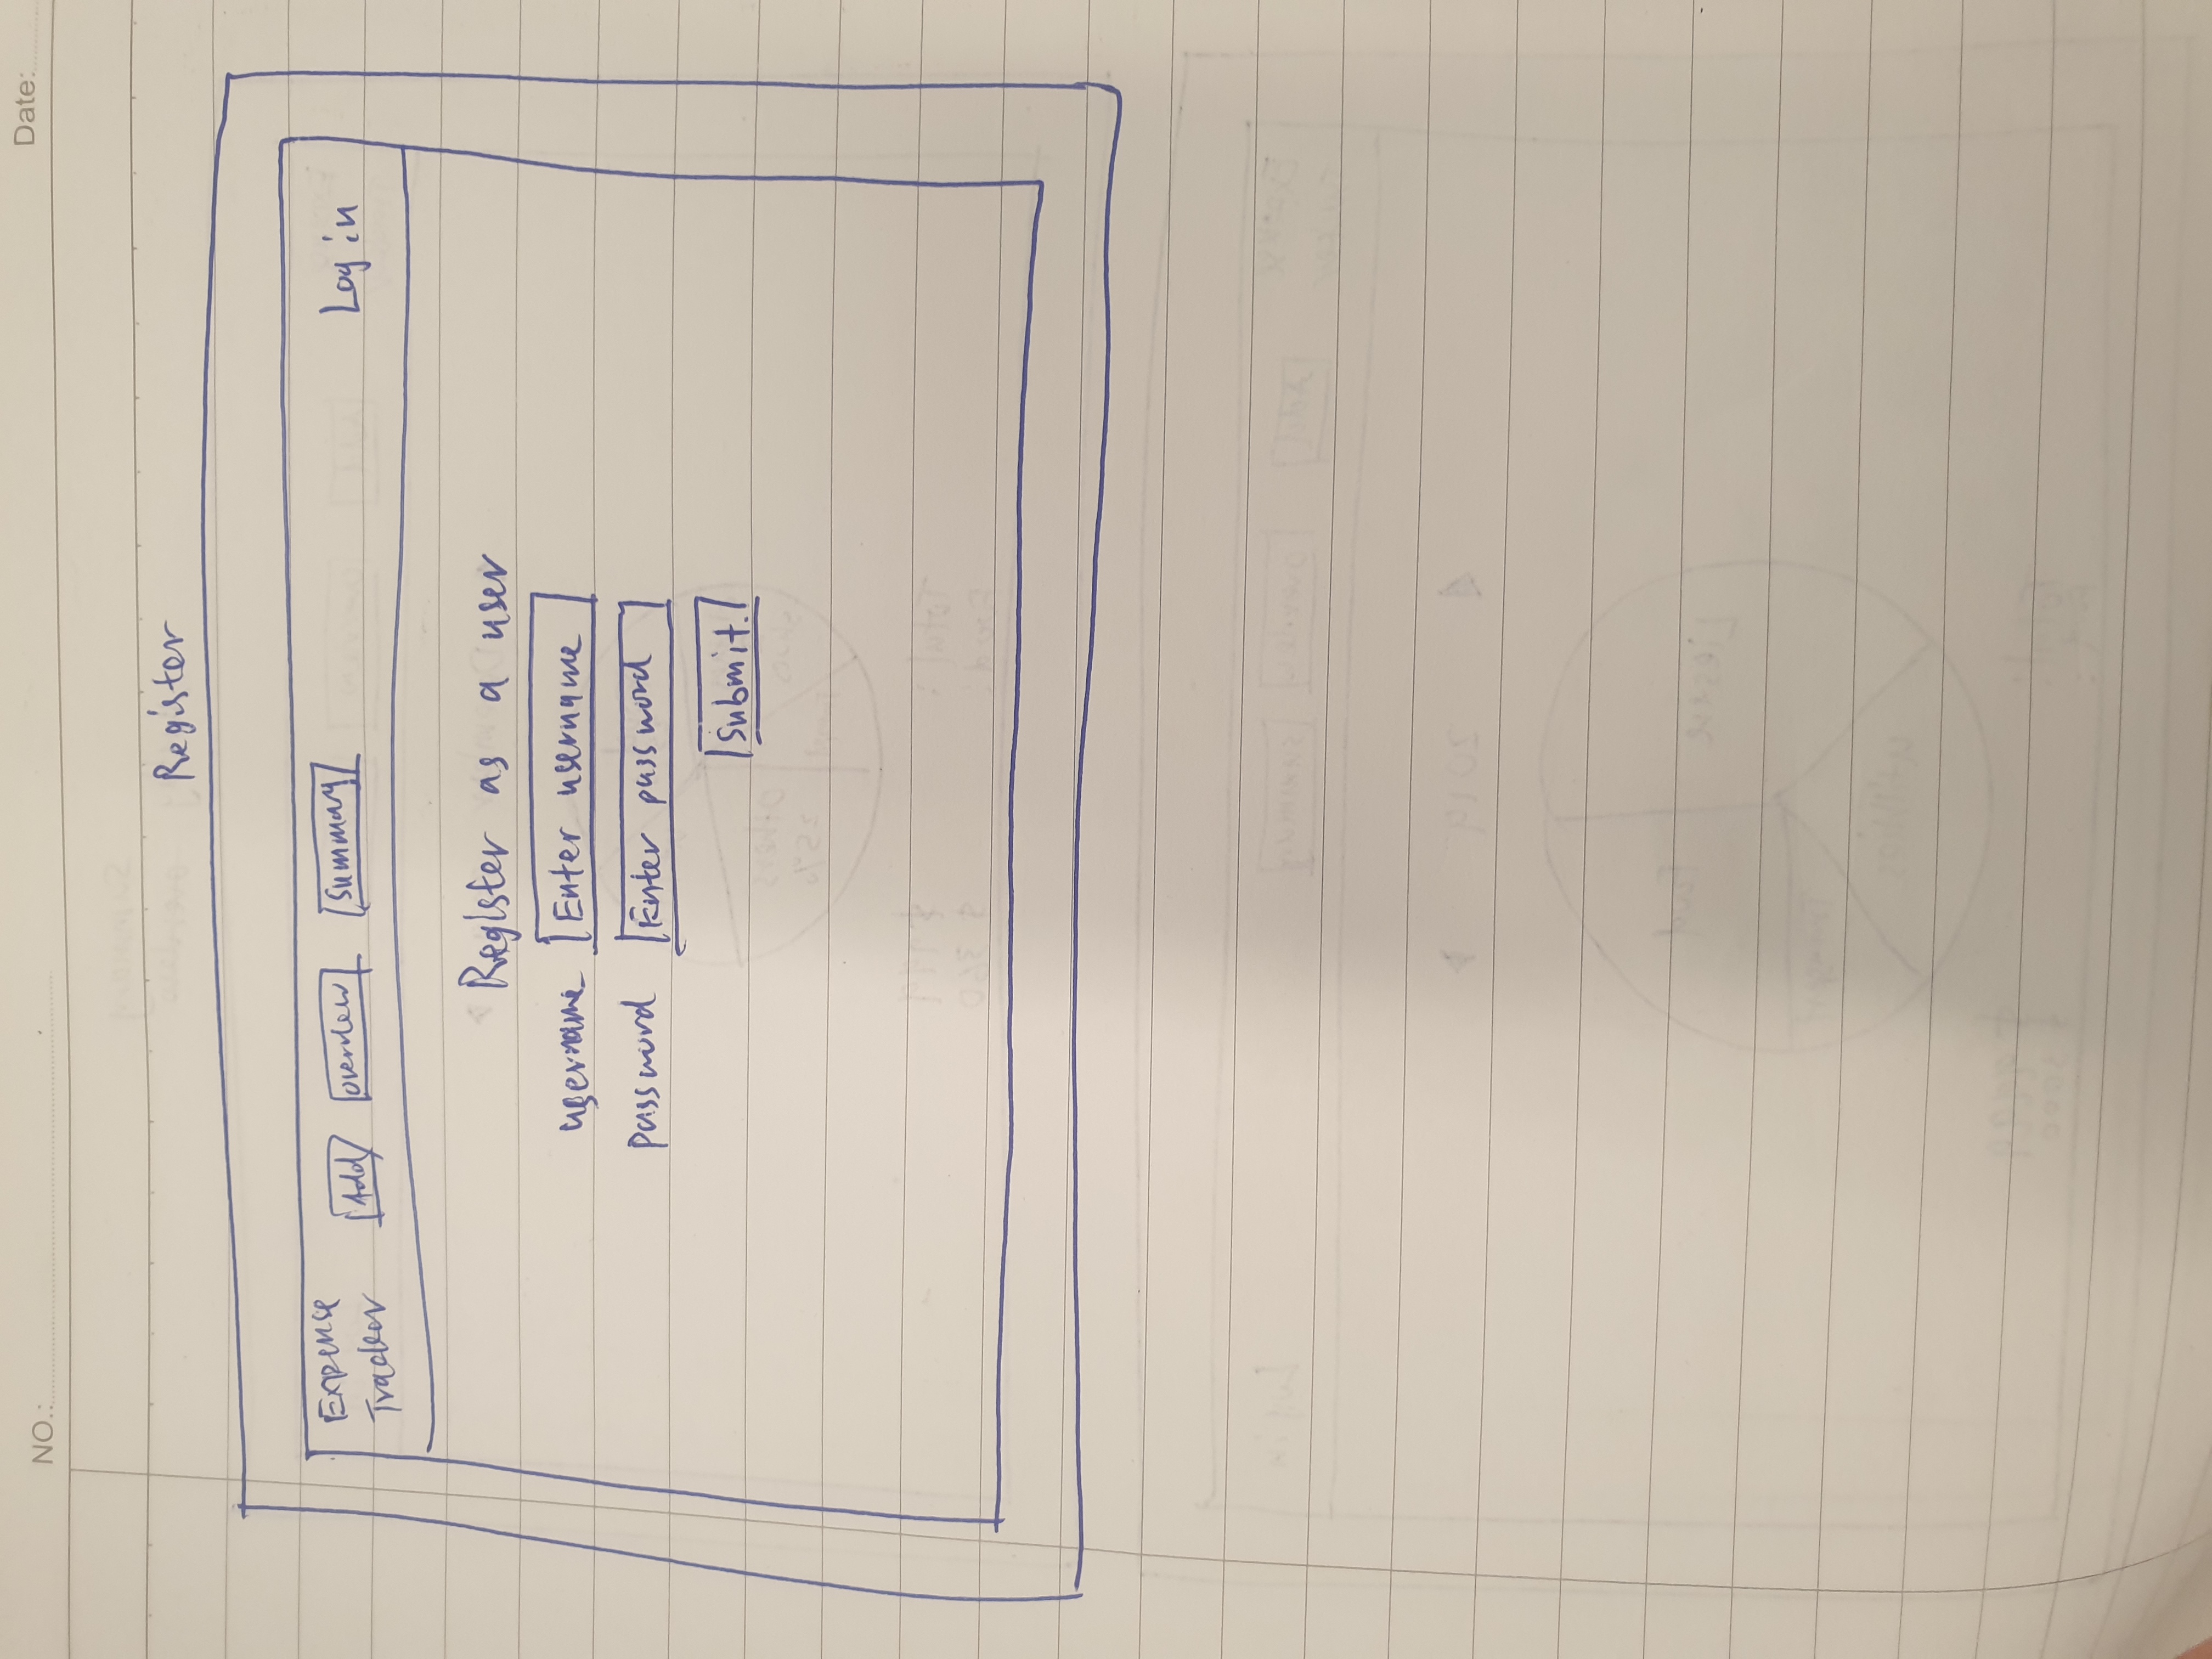 NO.:
Date:
Register
Expense
Tracker
Add
overview
Summary
Log in
Register as a user
username
Enter username
password
Enter password
Submit.